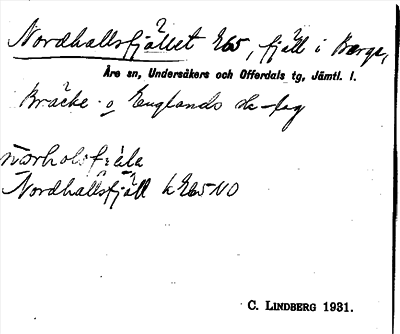 Nordhallsfjället 265, fjäll i Berge,
Åre sn, Undersåkers och Offerdals tg, Jämtl. l.
Bräcke o Englands sk-lag
Nordhallsfjäll k 265 NO
C. LINDBERG 1931.